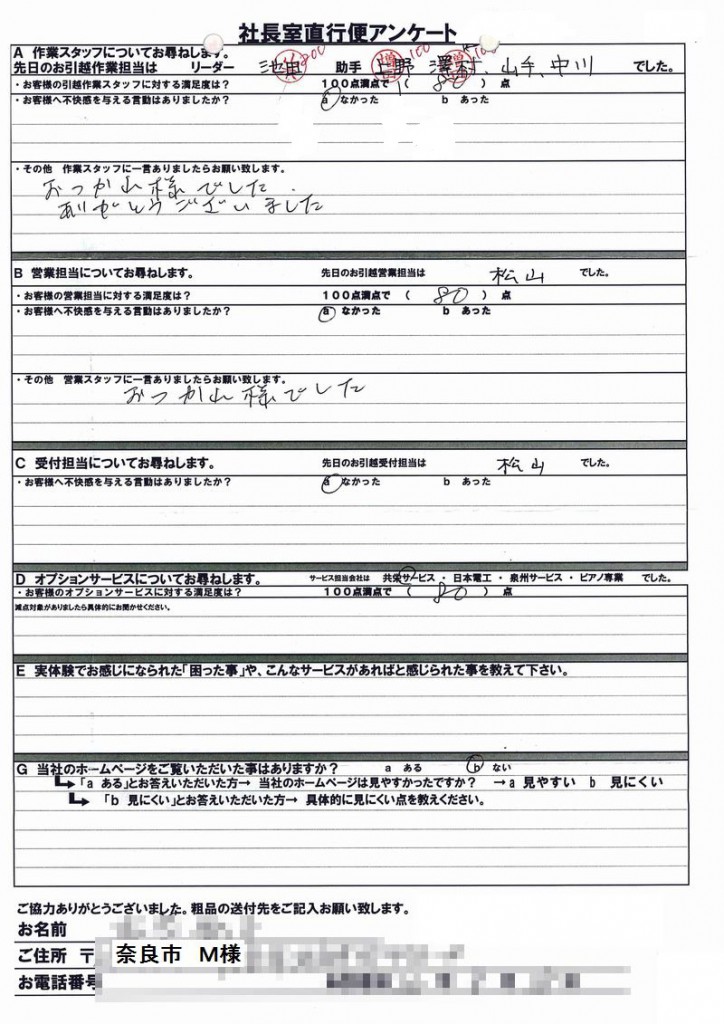 社長室直行便アンケート
A 作業スタッフについてお尋ねします。
先日のお引越作業担当は リーダー 池田 助手 上野 澤村、山手、中川 でした。
・お客様の引越作業スタッフに対する満足度は? 100点満点で ( 80 ) 点
・お客様へ不快感を与える言動はありましたか? a なかった b あった
・その他 作業スタッフに一言ありましたらお願い致します。
おつかれ様でした.
ありがとうございました
B 営業担当についてお尋ねします。 先日のお引越営業担当は 松山 でした。
・お客様の営業担当に対する満足度は? 100点満点で ( 80 ) 点
・お客様へ不快感を与える言動はありましたか? a なかった b あった
・その他 営業スタッフに一言ありましたらお願い致します。
おつかれ様でした
C 受付担当についてお尋ねします。 先日のお引越受付担当は 松山 でした。
・お客様へ不快感を与える言動はありましたか? a なかった b あった
D オプションサービスについてお尋ねします。 サービス担当会社は 共栄サービス ・ 日本電工 ・ 泉州サービス ・ ピアノ専業 でした。
・お客様のオプションサービスに対する満足度は? 100点満点で ( 80 ) 点
減点対象がありましたら具体的にお聞かせください。
E 実体験でお感じになられた「困った事」や、こんなサービスがあればと感じられた事を教えて下さい。
G 当社のホームページをご覧いただいた事はありますか? a ある b ない
「a ある」とお答えいただいた方→ 当社のホームページは見やすかったですか? →a 見やすい b 見にくい
「b 見にくい」とお答えいただいた方→ 具体的に見にくい点を教えください。
ご協力ありがとうございました。粗品の送付先をご記入お願い致します。
お名前
ご住所 〒 奈良市 M様
お電話番号